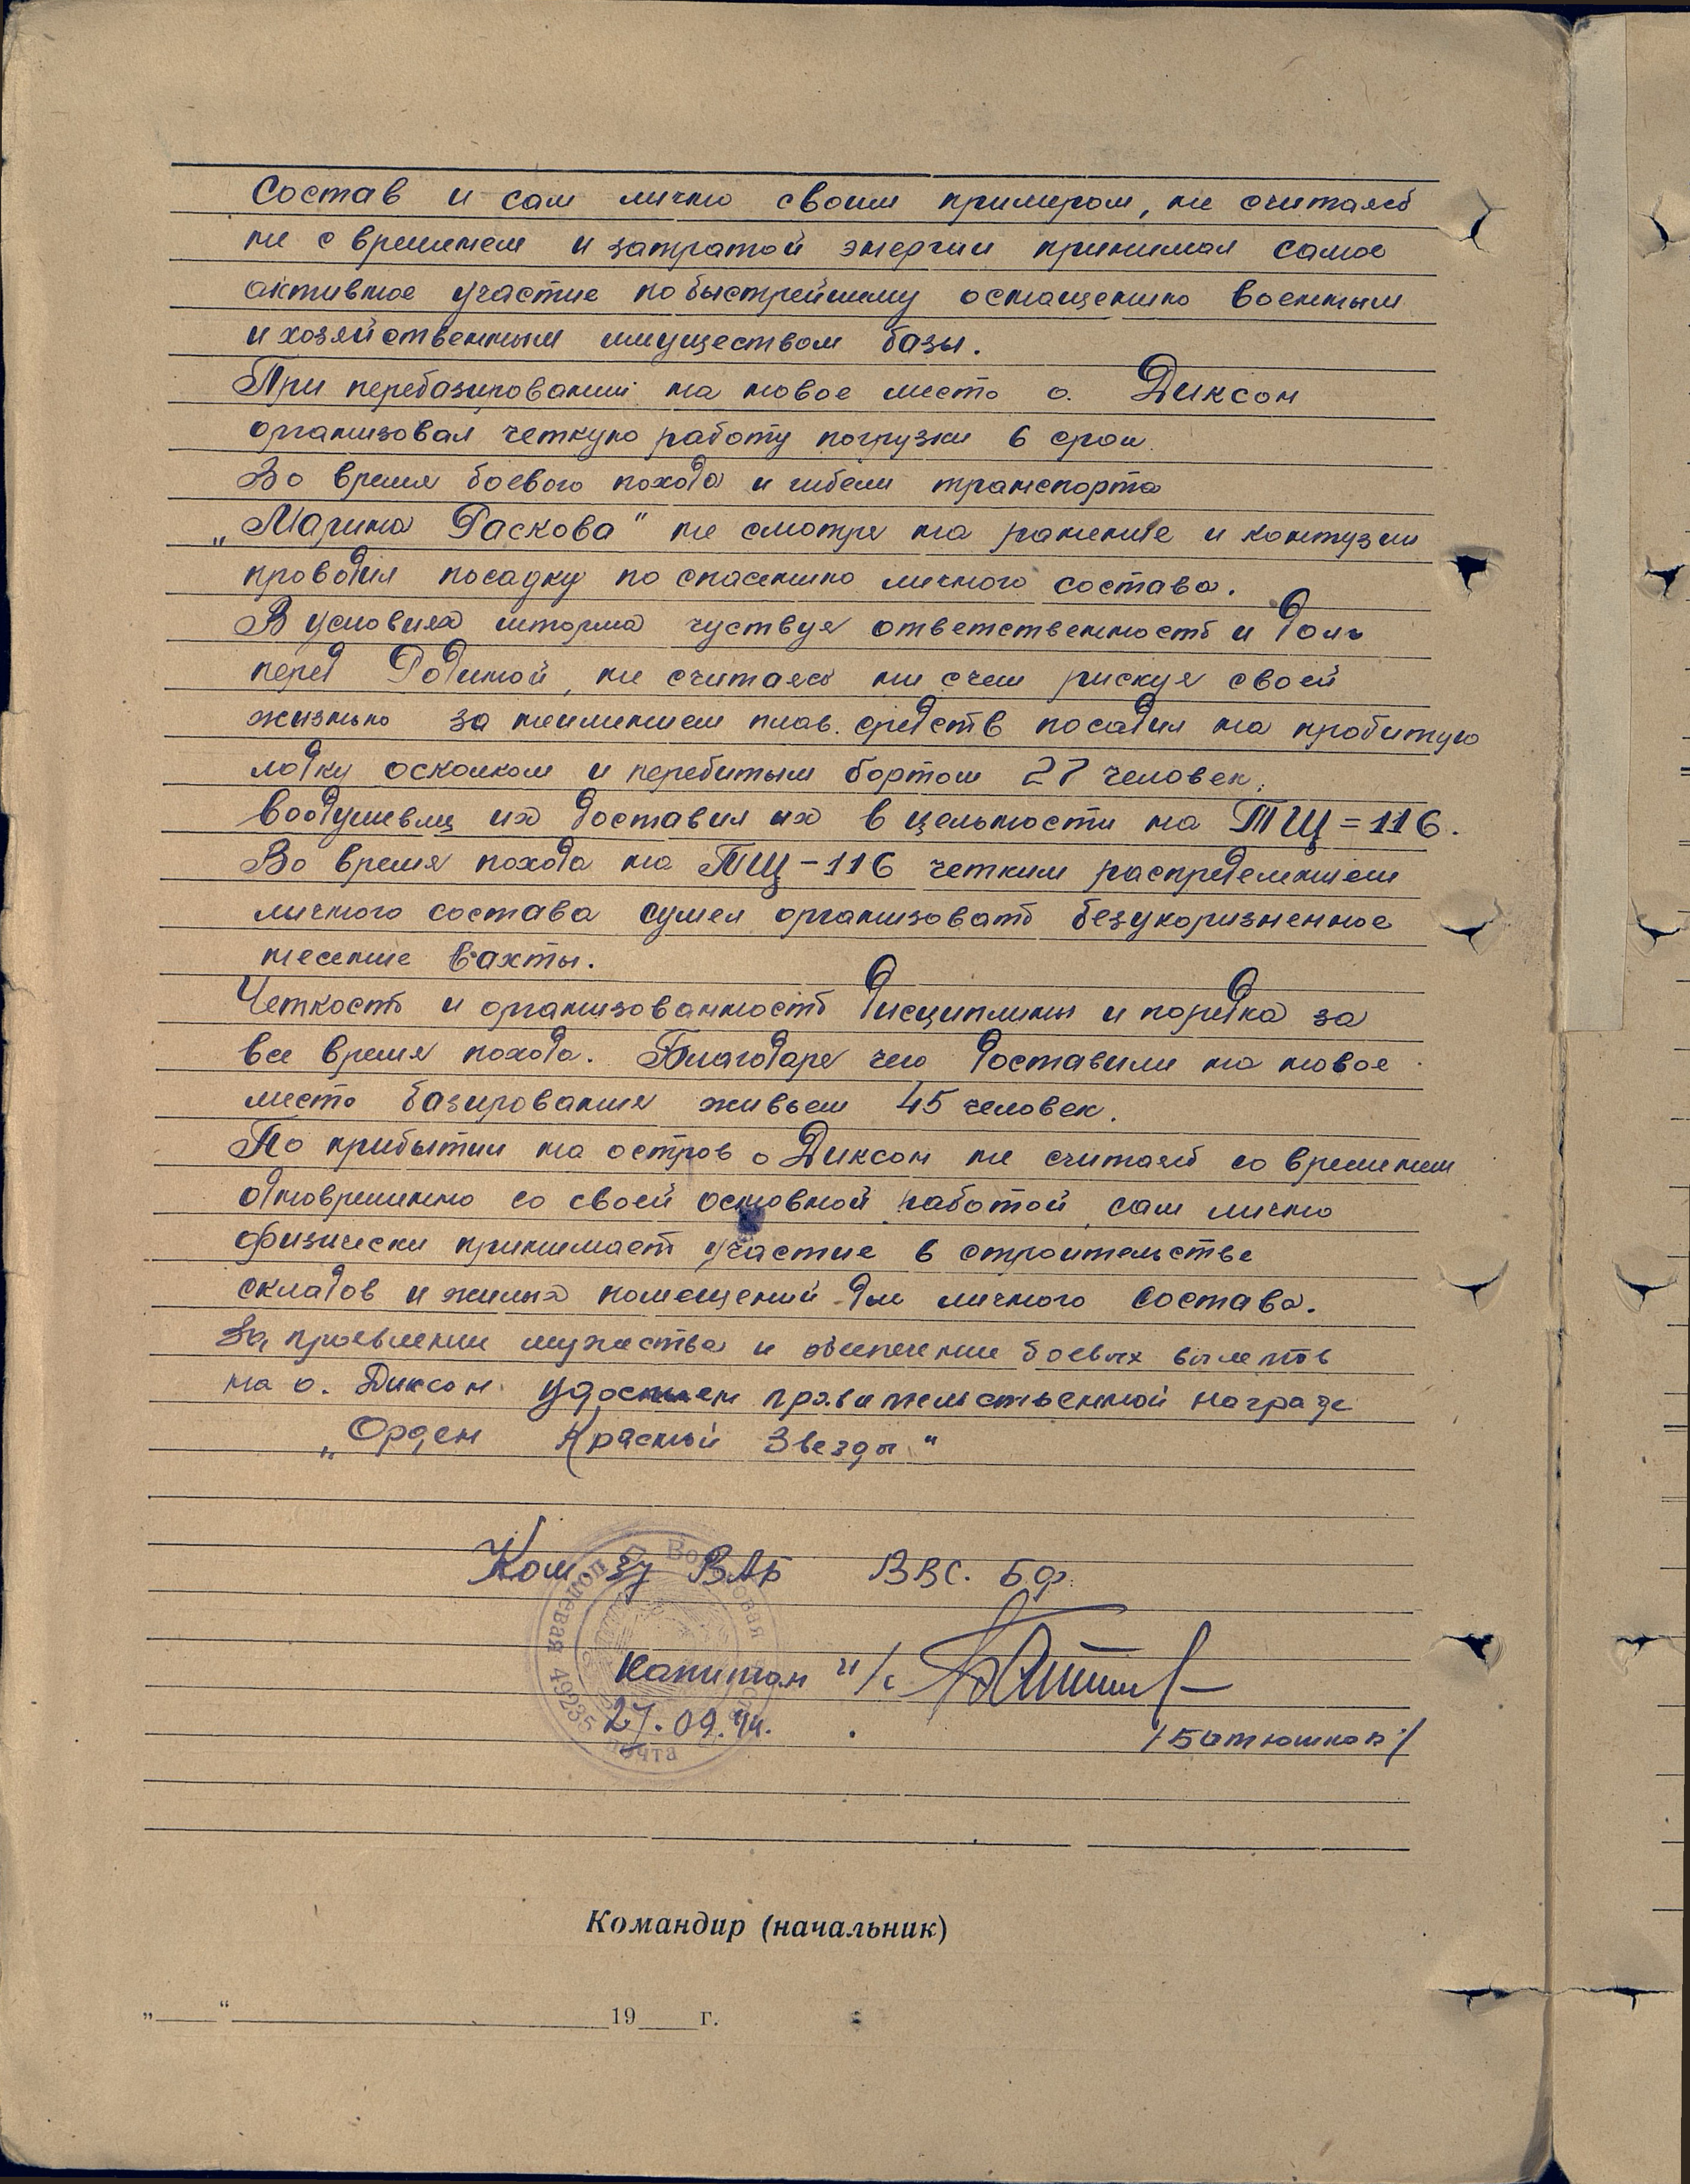 Состав и сам лично своим примером, не считаясь
не с временем и затратой энергии принимал самое
активное участие по быстрейшему оснащению военным
и хозяйственным имуществом базы.
При перебазировании на новое место о. Диксон
организовал четкую работу погрузки в срок.
Во время боевого похода и гибели транспорта
„Марина Раскова" не смотря на ранение и контузии
проводил посадку по спасению личного состава.
В условиях шторма чуствуя ответственность и долг
перед Родиной, не считаясь ни с чем рискуя своей
жизнью за неимением плав. средств посадил на пробитую
лодку осколком и перебитым бортом 27 человек,
воодушевлщ их доставил их в цельности на ТЩ=116.
Во время похода на ТЩ-116 четким распределением
личного состава сумел организовать безукоризненное
несение вахты.
Четкость и организованность дисциплины и порядка за
все время похода. Благодаря чего доставили на новое
место базирования живьем 45 человек.
По прибытии на остров о Диксон не считаясь со временем
одновременно со своей основной работой, сам лично
физически принимает участие в строительстве
складов и жилых помещений для личного состава.
За проявлении мужества и обеспечении боевых вылетов
на о. Диксон удостоен правительственной награде
„Орден Красной Звезды"
Ком-р ВАБ ВВС. БФ.
капитан и/с
27.09.44.
/Батюшков/
Полевая почта 49235
Командир (начальник)
„ “ 19 г.